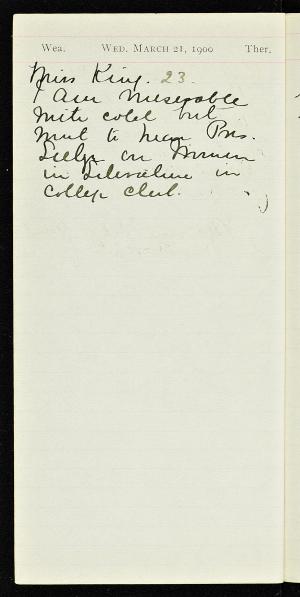 Wea. WED. MARCH 21, 1900 Ther.
Miss King. 23.
I am miserable
with cold but
went to hear Pres.
Seelye on Women
in Literature in
College Club.